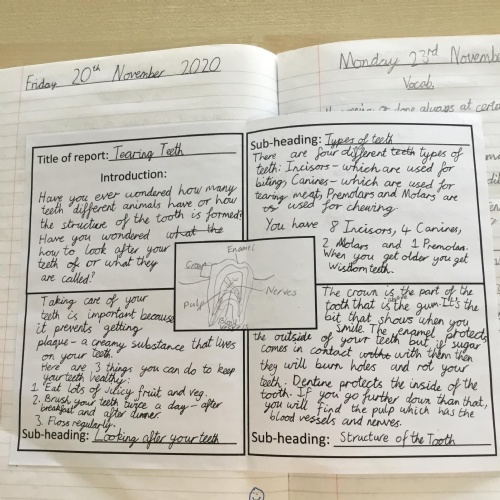 Friday 20th November 2020
Monday 23rd Novembe
Vocab.
Title of report: Tearing Teeth
Introduction:
Have you ever wondered how many
teeth different animals have or how
the structure of the tooth is formed?
Have you wondered what the
how to look after your
teeth of or what they
are called?
Sub-heading: Types of teeth
There are four different teeth types of
teeth: Incisors - which are used for
biting, Canines - which are used for
tearing meat, Premolars and Molars are
used for chewing.
You have 8 Incisors, 4 Canines,
2 Molars and 1 Premolar.
When you get older you get
Wisdom teeth.
Enamel
Nerves
Pulp
Taking care of your
teeth is important because
it prevents getting
plaque - a creamy substance that lives
on your teeth.
Here are 3 things you can do to keep
your teeth healthy:
1. Eat lots of juicy fruit and veg.
2. Brush your teeth twice a day - after
breakfast and after dinner.
3. Floss regularly.
Sub-heading: Looking after your teeth
The crown is the part of the
tooth that is above the gum. It's the
bit that shows when you
smile. The enamel protects
the outside of your teeth but if sugar
comes in contact with them then
they will burn holes and rot your
teeth. Dentine protects the inside of the
tooth. If you go further down than that,
you will find the pulp which has the
blood vessels and nerves.
Sub-heading: Structure of the Tooth